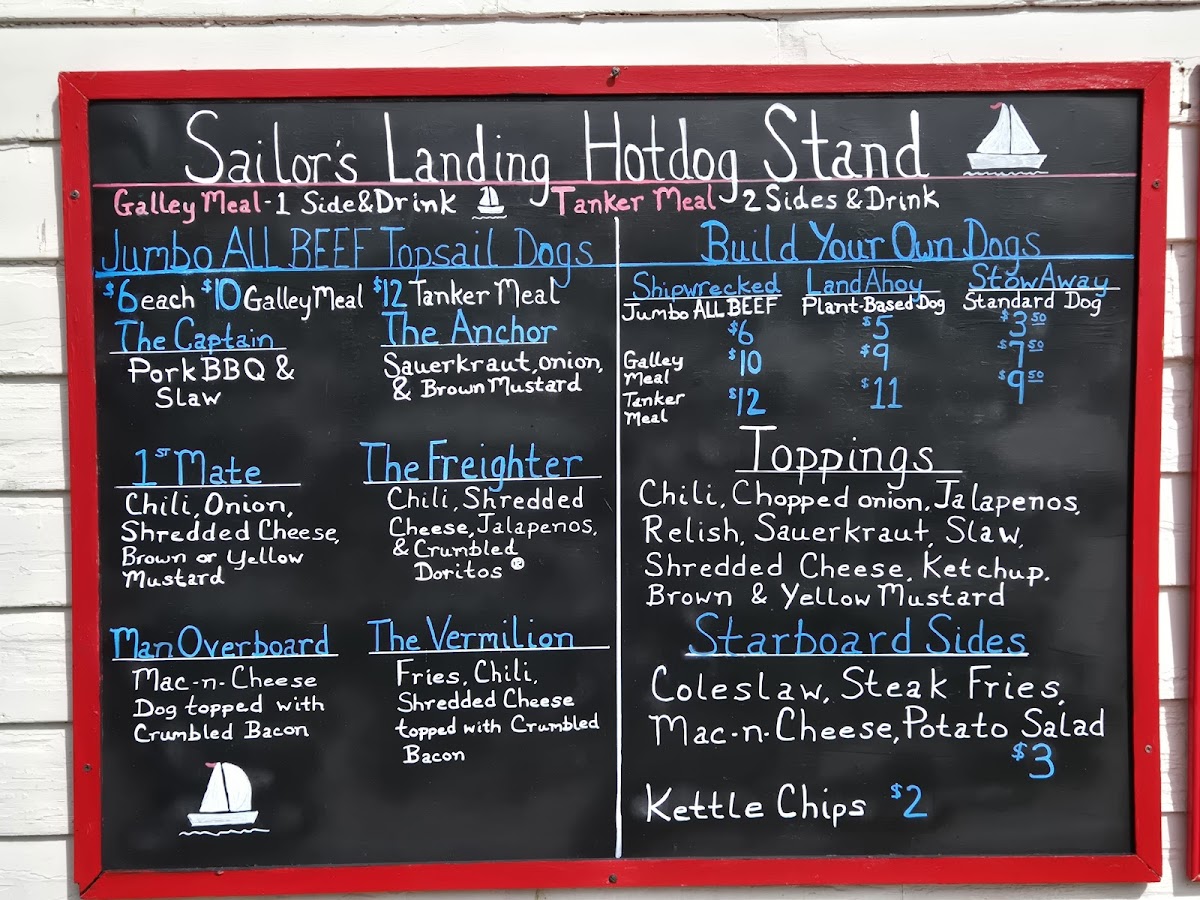 Sailor's Landing Hotdog Stand
Galley Meal - 1 Side & Drink
Tanker Meal 2 Sides & Drink
Jumbo ALL BEEF Topsail Dogs
$6 each $10 Galley Meal $12 Tanker Meal
The Captain
Pork BBQ &
Slaw
The Anchor
Sauerkraut, onion,
& Brown Mustard
1ST Mate
Chili, Onion,
Shredded Cheese,
Brown or Yellow
Mustard
The Freighter
Chili, Shredded
Cheese, Jalapenos,
& Crumbled
Doritos ®
Man Overboard
Mac-n-Cheese
Dog topped with
Crumbled Bacon
The Vermilion
Fries, Chili,
Shredded Cheese
topped with Crumbled
Bacon
Build Your Own Dogs
Shipwrecked Land Ahoy Stow Away
Jumbo ALL BEEF Plant-Based Dog Standard Dog
$6 $5 $3 50
Galley
Meal
$10 $9 $7 50
Tanker
Meal
$12 $11 $9 50
Toppings
Chili, Chopped onion, Jalapenos,
Relish, Sauerkraut, Slaw,
Shredded Cheese, Ketchup.
Brown & Yellow Mustard
Starboard Sides
Coleslaw, Steak Fries,
Mac-n-Cheese, Potato Salad
$3
Kettle Chips $2